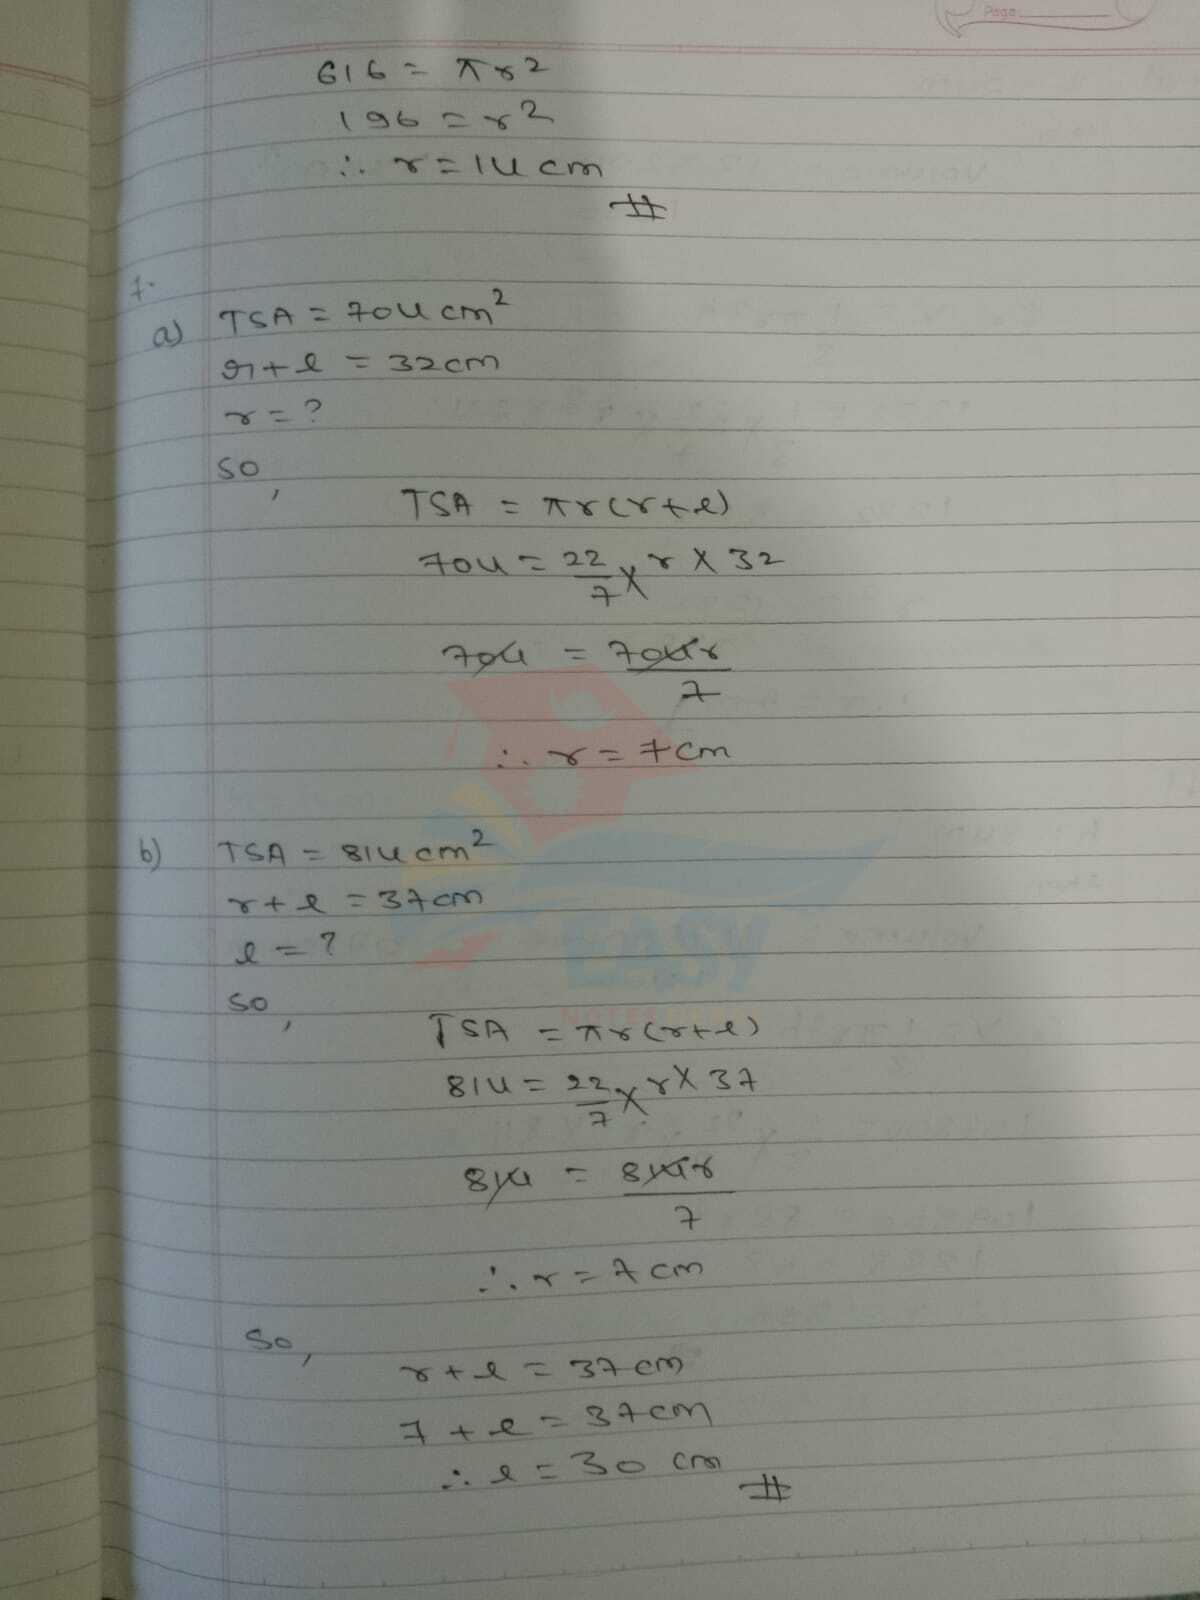 Page:
616 = πr2
196 = r2
∴ r = 14 cm
#
7.
a) TSA = 704 cm²
r+l = 32cm
r = ?
so,
TSA = πr(r+l)
704 = 22/7 × r × 32
704 = 704r/7
∴ r = 7cm
b) TSA = 814 cm²
r+l = 37cm
l = ?
so,
EASY
NOTES
TSA = πr(r+l)
814 = 22/7 × r × 37
814 = 814r/7
∴ r = 7cm
So,
r+l = 37cm
7 + l = 37cm
∴ l = 30 cm
#